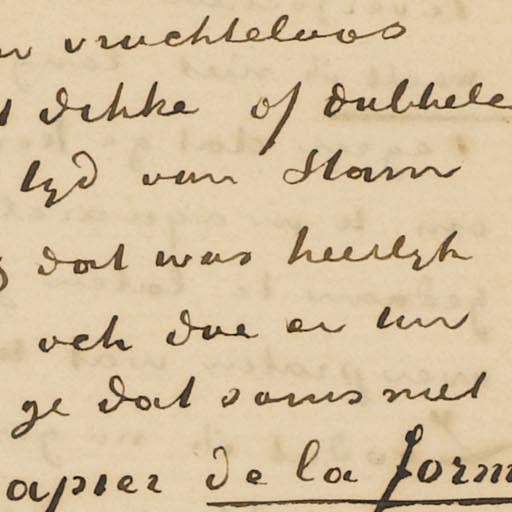 vruchteloos
dikke of dubbele
tyd van Stam
dat was heerlyk
och doe er um
ge dat soms met
apier de la form